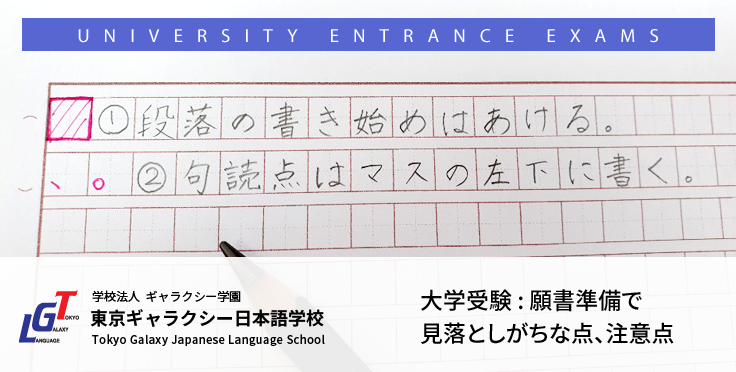 UNIVERSITY ENTRANCE EXAMS
①段落の書き始めはあける。
、。②句読点はマスの左下に書く。
学校法人 ギャラクシー学園
東京ギャラクシー日本語学校
Tokyo Galaxy Japanese Language School
TOKYO
GALAXY
LANGUAGE
大学受験：願書準備で
見落としがちな点、注意点